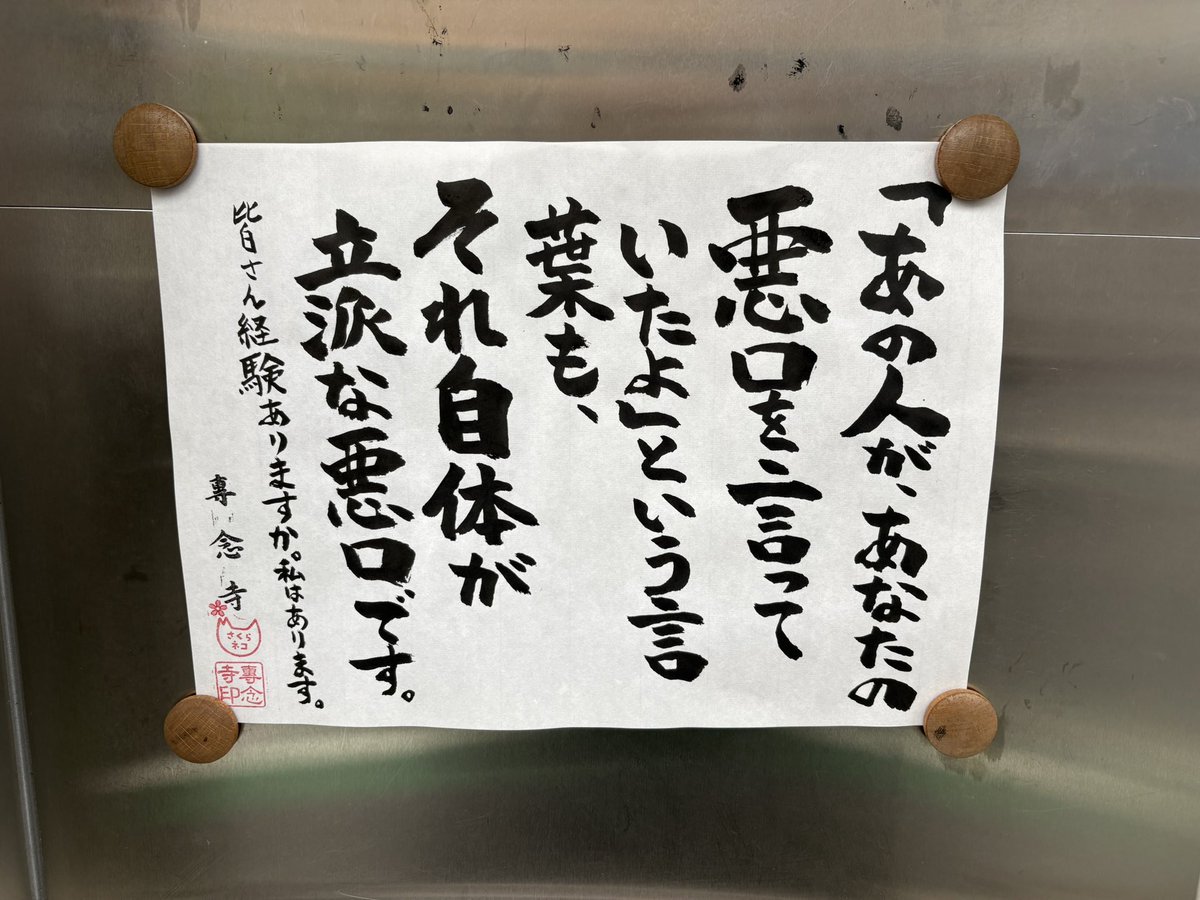 「あの人が、あなたの
悪口を言って
いたよ」という言
葉も、
それ自体が
立派な悪口です。
皆さん経験ありますか。私はあります。
專念寺
さくら
ネコ
專念
寺印